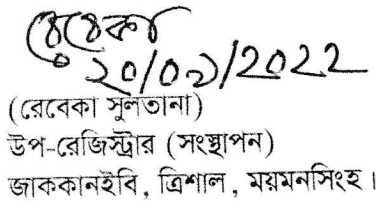 রেবেকা
২০/০৯/2022
(রেবেকা সুলতানা)
উপ-রেজিস্ট্রার (সংস্থাপন)
জাককানইবি, ত্রিশাল, ময়মনসিংহ।